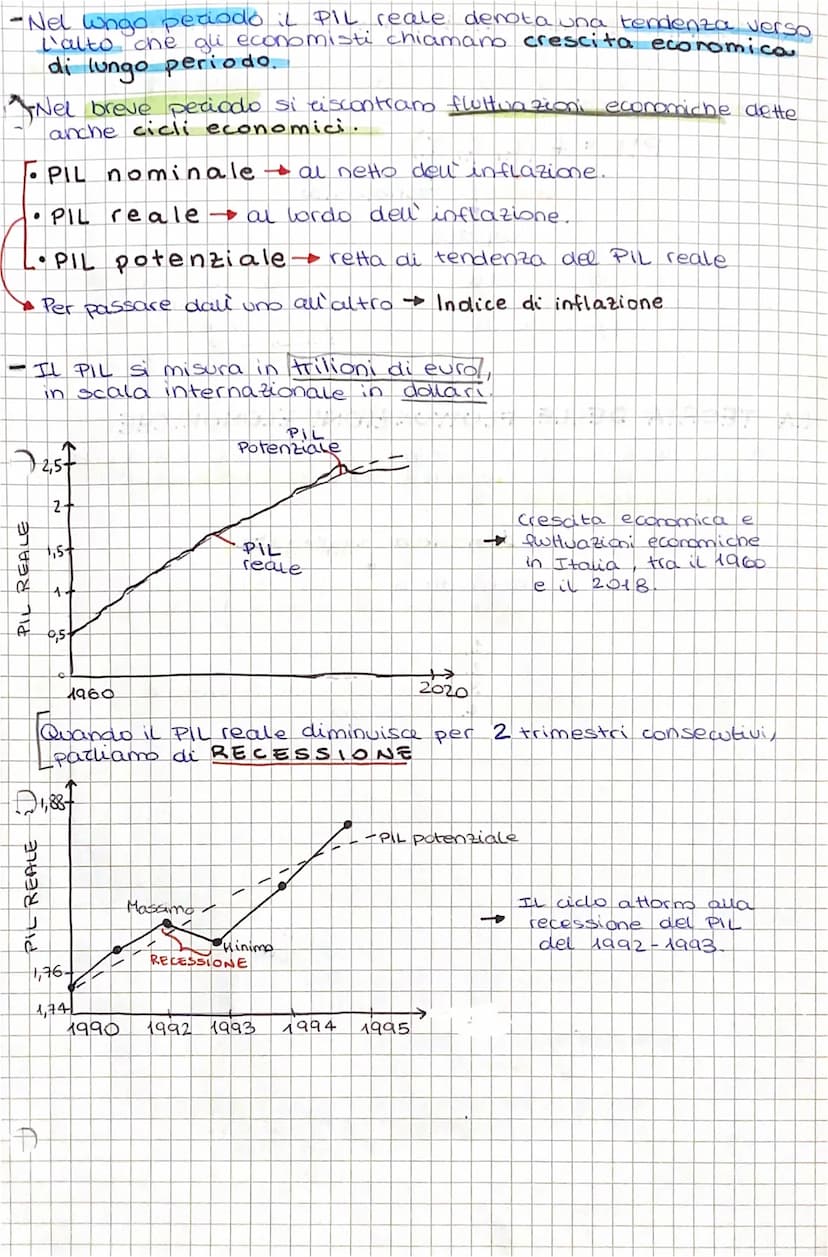 - Nel lungo periodo il PIL reale denota una tendenza verso
l'alto che gli economisti chiamano crescita economica
di lungo periodo.
- Nel breve periodo si riscontrano fluttuazioni economiche dette
anche cicli economici.
• PIL nominale → al netto dell'inflazione.
• PIL reale → al lordo dell'inflazione.
• PIL potenziale → retta di tendenza del PIL reale
Per passare dall'uno all'altro → Indice di inflazione
- Il PIL si misura in trilioni di euro,
in scala internazionale in dollari.
PIL
Potenziale
2,5
2
1,5
1
0,5
0
PIL REALE
PIL
reale
1960
2020
→ Crescita economica e
fluttuazioni economiche
in Italia, tra il 1960
e il 2018.
Quando il PIL reale diminuisce per 2 trimestri consecutivi,
parliamo di RECESSIONE
1,88
PIL REALE
- PIL potenziale
Massimo
Minimo
RECESSIONE
1,76
1,74
1990 1992 1993 1994 1995
→ Il ciclo attorno alla
recessione del PIL
del 1992-1993.